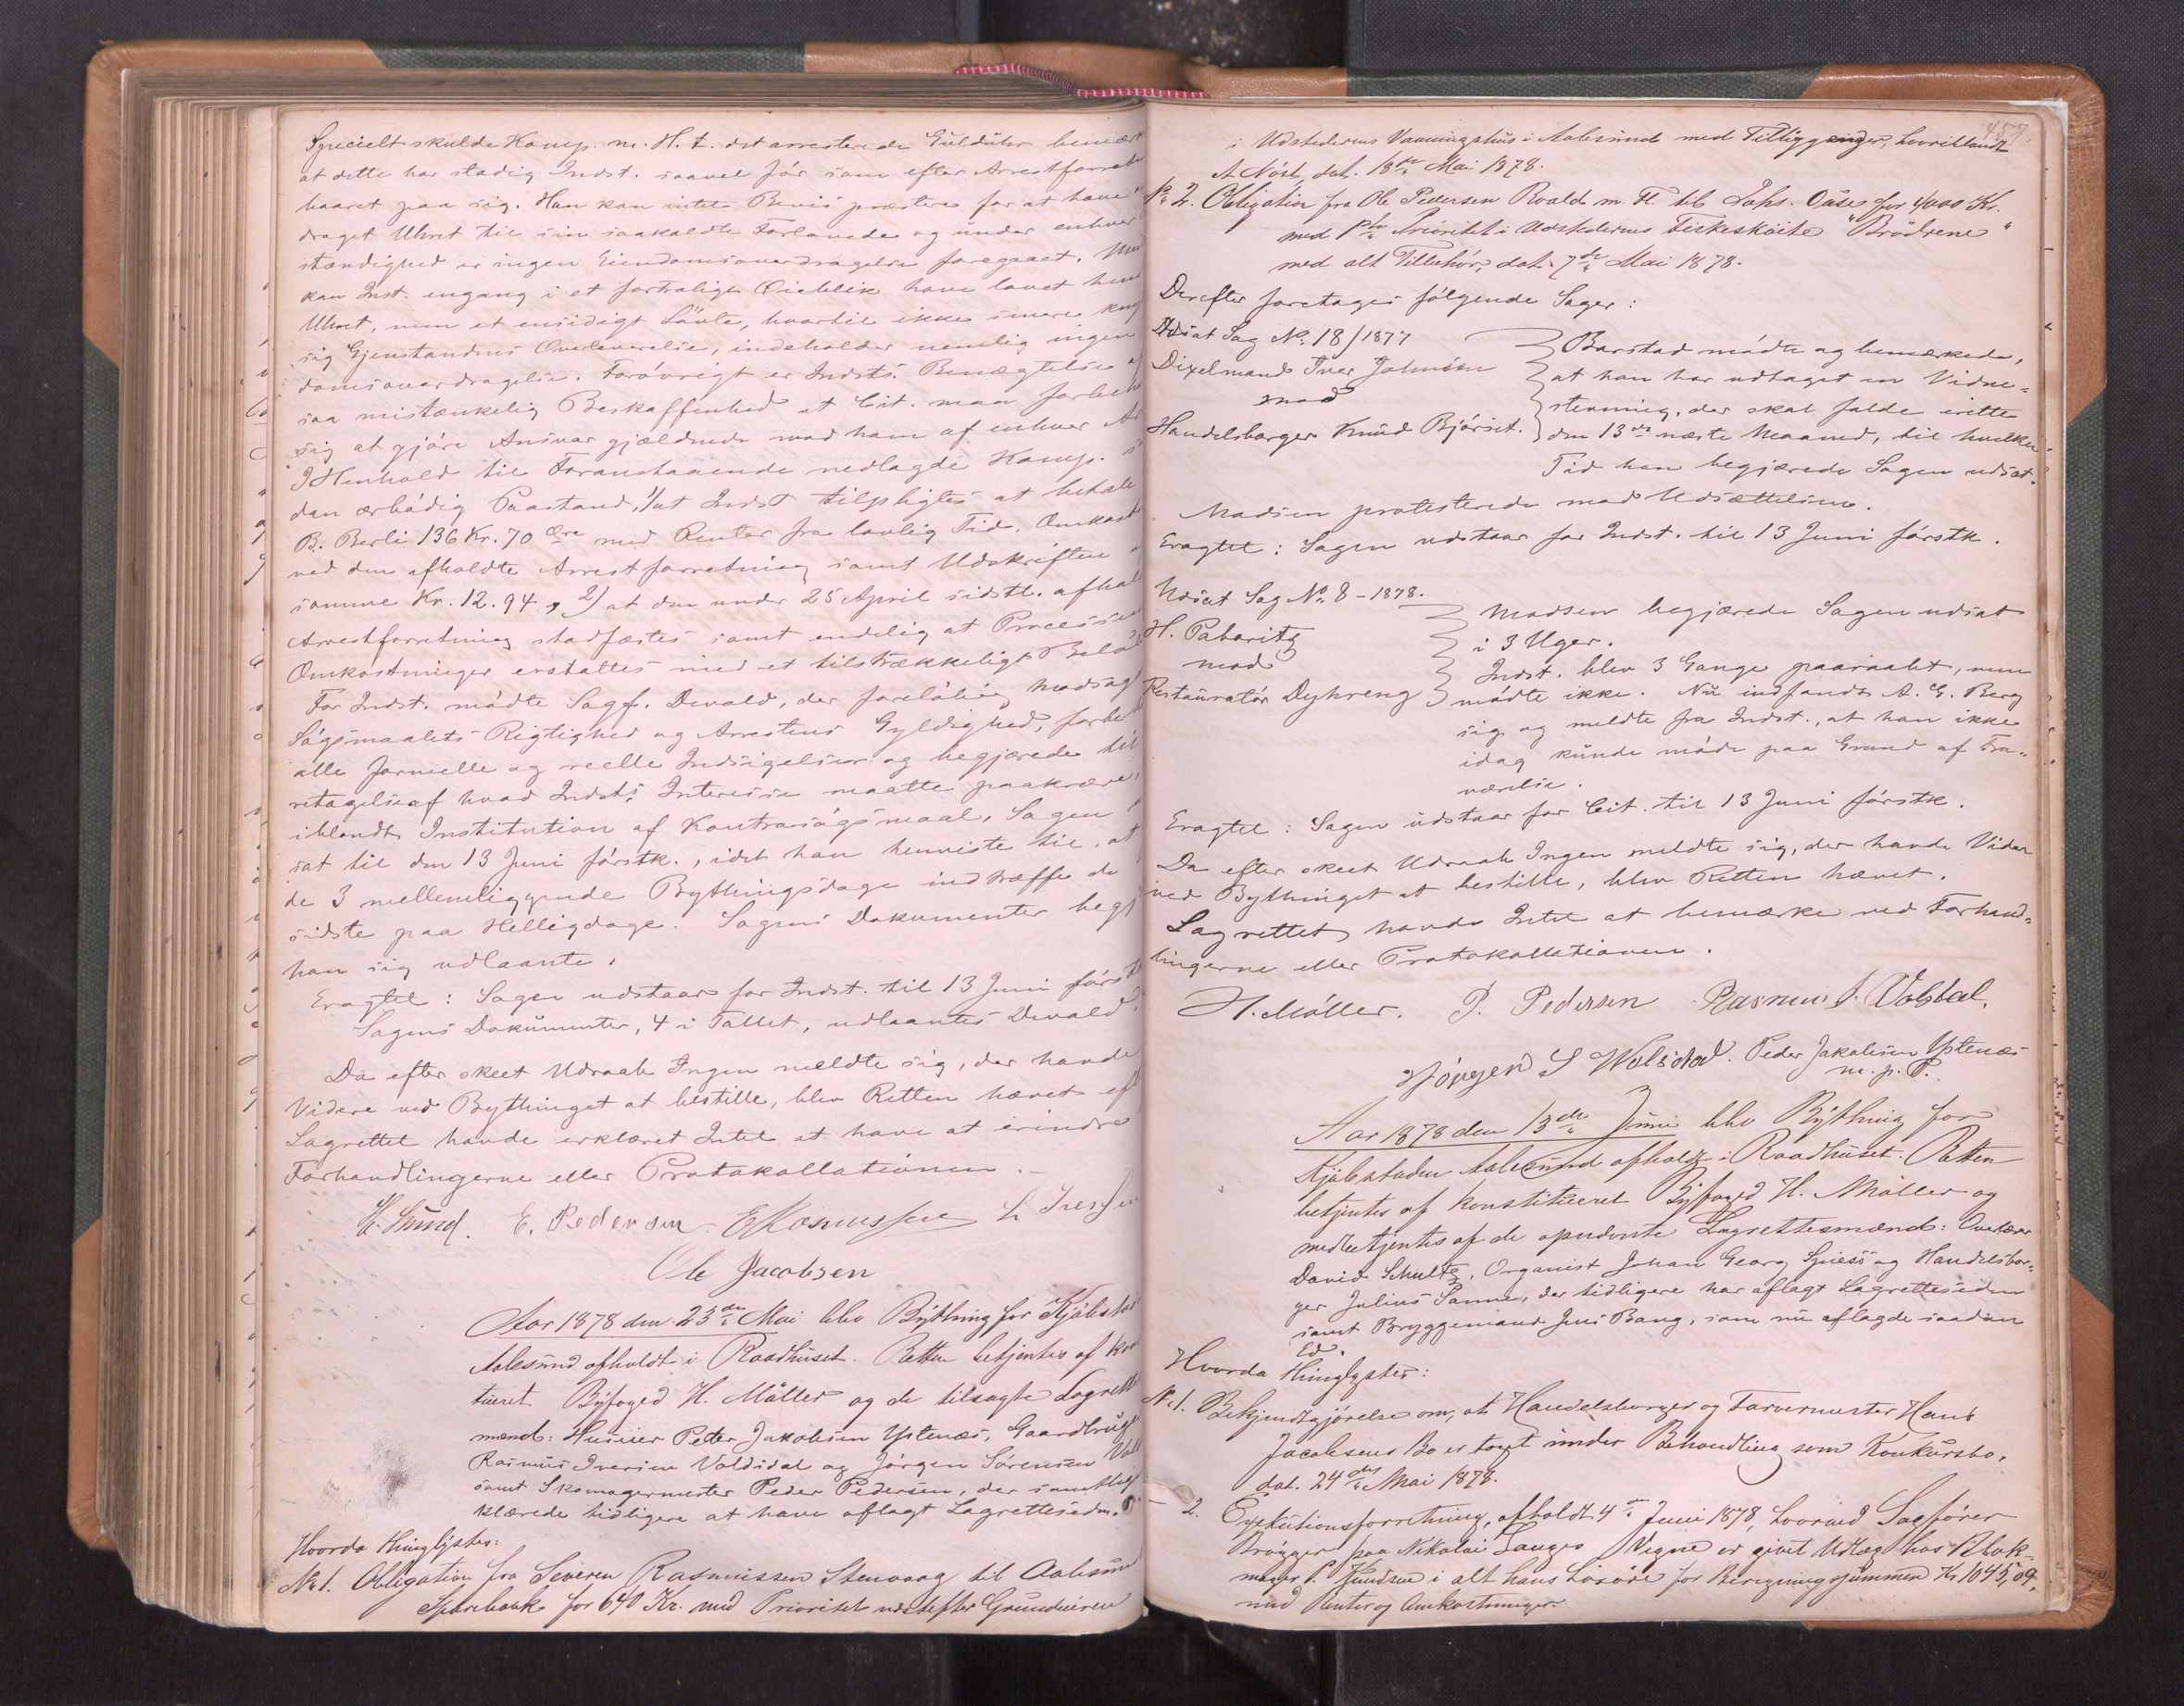 Specielt skulde Komp. m. H. t. det arresterede Guldühr bemær
at dette har stadig Indst. saavel før som efter Arrestforret
baaret paa sig. Han kan intet Bevis præstere for at have
draget Uhret til sin saakaldte Forlovede og under enhver
stændighed er ingen Eiendomsoverdragelse foregaaet.
kan Inst. engang i et fortroligt Øieblik have lovet hen
Uhret, men et ensidigt Løvte, hvortil ikke senere
sig Gjenstandens Overleverelse, indeholder nemlig ingen
domsoverdragelse. Forøvrigt er Indsts. Benægtelse af
saa mistænkelig Beskaffenhed at Cit. maa forbeh
sig at gjøre Ansvar gjældende mod ham af enhver
I Henhold til Foranstaaende nedlagde Komp.
den ærbødig Paastand, 1/ at Indst tilpligtes at betale
B. Berli 136 Kr. 70 Øre med Renter fra lovlig Tid, Omkost
ved den afholdte Arrestforretning samt Udskriften
samme Kr. 12.94, 2) at den under 25 April sidstl. afhol
Arrestforretning stadfæstes samt endelig at Processen
Omkostninger erstattes med et tilstrækkeligt Beløb
For Indst. mødte Sagf. Devold, der foreløbig modsag
Søgsmaalets Rigtighed og Arrestens Gyldighed, forbeh
alle formelle og reelle Indsigelser og begjærede til
retagelse af hvad Indsts. Interesse maatte paakræve,
iblandt Institution af Kontrasøgsmaal, Sagen
sat til den 13 Juni førstk., idet han henviste til, at
de 3 mellemliggende Bythingsdage indtræffe de
sidste paa Helligdage. Sagens Dokumenter begj
han sig udlaante.
Eragtet: Sagen udstaar for Indst. til 13 Juni først
Sagens Dokümenter, 4 i Tallet, udlaantes Devold.
Da efter skeet Udraab Ingen meldte sig, der havde
Videre ved Bythinget at bestille, blev Retten hævet eft
Lagrettet havde erklæret Intet at have at erindre
Forhandlingerne eller Protokollationen.
H. Sünd. E. Pedersen E Rasmussen L Iversen
Ole Jacobsen
Aar 1878 den 23de Mai blev Bything for Kjøbstad
Aalesund afholdt i Raadhüset. Retten betjentes af kon
tueret Byfoged H. Møller og de tilsagte Lagrett
mænd: Huseier Peter Jakobsen Ystenæs, Gaardbrug
Rasmus Iversen Voldsdal og Jørgen Sørensen Vol
samt Skomagermester Peder Pedersen, der samtlig
klærede tidligere at have aflagt Lagretteseden.
Hvorda thinglystes:
No 1. Obligation fra Severin Rasmussen Stenvaag til Aalesun
Sparebank for 640 Kr. med Prioritet næstefter Grundeieren
457.
i Udstederens Vaaningshus i Aalesund med Tilliggender, hvoriblandt
A Nøst, dat. 18de Mai 1878.
No 2. Obligation fra Ole Pedersen Roald m. Fl. til Johs. Ouse for 4000 Kr.
med 1ste Prioritet i Udstedernes Fiskeskøite "Brødrene"
med alt Tilbehør, dat. 7de Mai 1878.
Derefter foretages følgende Sager:
Udsat Sag No. 18/1877
Dixelmand Iver Johnsen
mod
Handelsborger Knud Bjørset.
Barstad mødte og bemærkede,
at han har udtaget en Vidne-
stevning, der skal falde irette
den 13de næste Maaned, til hvilken
Tid han begjærede Sagen udsat.
Madsen protesterede mod Udsættelsen.
Eragtet: Sagen udstaar for Indst. til 13 Juni førstk.
Udsat Sag No. 8 - 1878.
H. Pabaritz
mod
Restauratør Dyhreng
Madsen begjærede Sagen udsat
i 3 Uger.
Indst. blev 3 Gange paaraabt, men
mødte ikke. Nu indfandt A. G. Berg
sig og meldte fra Indst., at han ikke
idag kunde møde paa Grund af Fra-
værelse.
Eragtet: Sagen udstaar for Cit. til 13 Juni førstk.
Da efter skeet Udraab Ingen meldte sig, der havde Videre
ved Bythinget at bestille, blev Retten hævet.
Lagrettet havde Intet at bemærke ved Forhand-
lingerne eller Protokollationen.
H. Møller. P. Pedersen Rasmus I. Volsdal.
Jørgen S Wolsdal. Peder Jakobsen Ystenæs
m. p. P.
Aar 1878 den 13de Juni blev Bything for
Kjøbstaden Aalesund afholdt i Raadhüset. Retten
betjentes af konstitueret Byfoged H. Møller og
medbetjentes af de opnævnte Lagrettesmænd: Overlærer
David Schultz, Organist Johan Georg Spiess og Handelsbor-
ger Julius Sanne, der tidligere har aflagt Lagretteseden
samt Bryggemand Jens Bang, som nu aflagde saadan
Ed.
Hvorda thinglystes:
No 1. Bekjendtgjørelse om, at Handelsborger og Farvermester Hans
Jacobsens Bo er taget under Behandling som Konkursbo,
dat. 24de Mai 1878.
- 2. Exekutionsforretning, afholdt 4de Juni 1878, hvorved Sagfører
Brøgger paa Nikolai Langes Vegne er givet Udlæg hos Blok-
mager P. Knudsen i alt hans Løsøre for Beregningssummen Kr. 1045,09,
med Renter og Omkostninger.